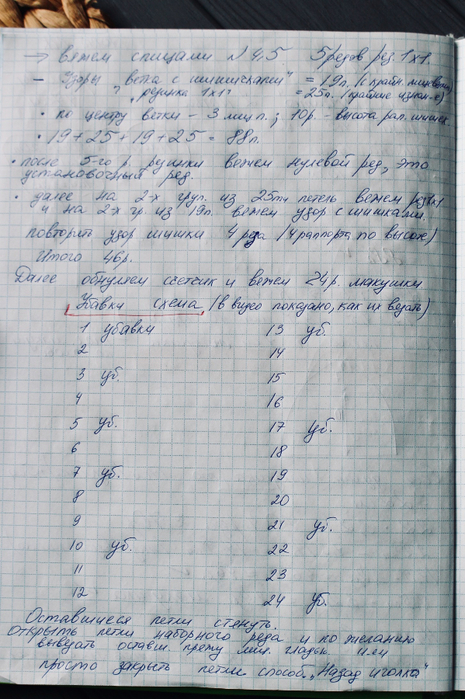 → вяжем спицами № 4,5 5 рядов рез. 1х1.
– Узоры „ветка с шишечками" = 19п. (с крайн. лицевыми)
„резинка 1х1" = 25п. (крайние изн.-е)
• по центру ветки – 3 лиц. п.; 10р. – высота рап. шишек
• 19 + 25 + 19 + 25 = 88п.
• после 5-го р. резинки вяжем нулевой ряд, это
установочный ряд.
• далее на 2-х груп. из 25ти петель вяжем рез 1х1
и на 2-х гр из 19п. вяжем узор с шишками.
повторить узор шишки 4 раза (4 раппорта по высоте)
Итого 46р.
Далее обнуляем счетчик и вяжем 24р. макушки
Убавки схема (в видео показано, как их вязать)
1 убавки 13 уб.
2 14
3 уб. 15
4 16
5 уб. 17 уб.
6 18
7 уб. 19
8 20
9 21 уб.
10 уб. 22
11 23
12 24 уб.
Оставшиеся петли стянуть.
Открыть петли наборного ряда и по желанию
вывязать оставш. пряжу лиц. гладью или
просто закрыть петли способ. „Назад иголка"